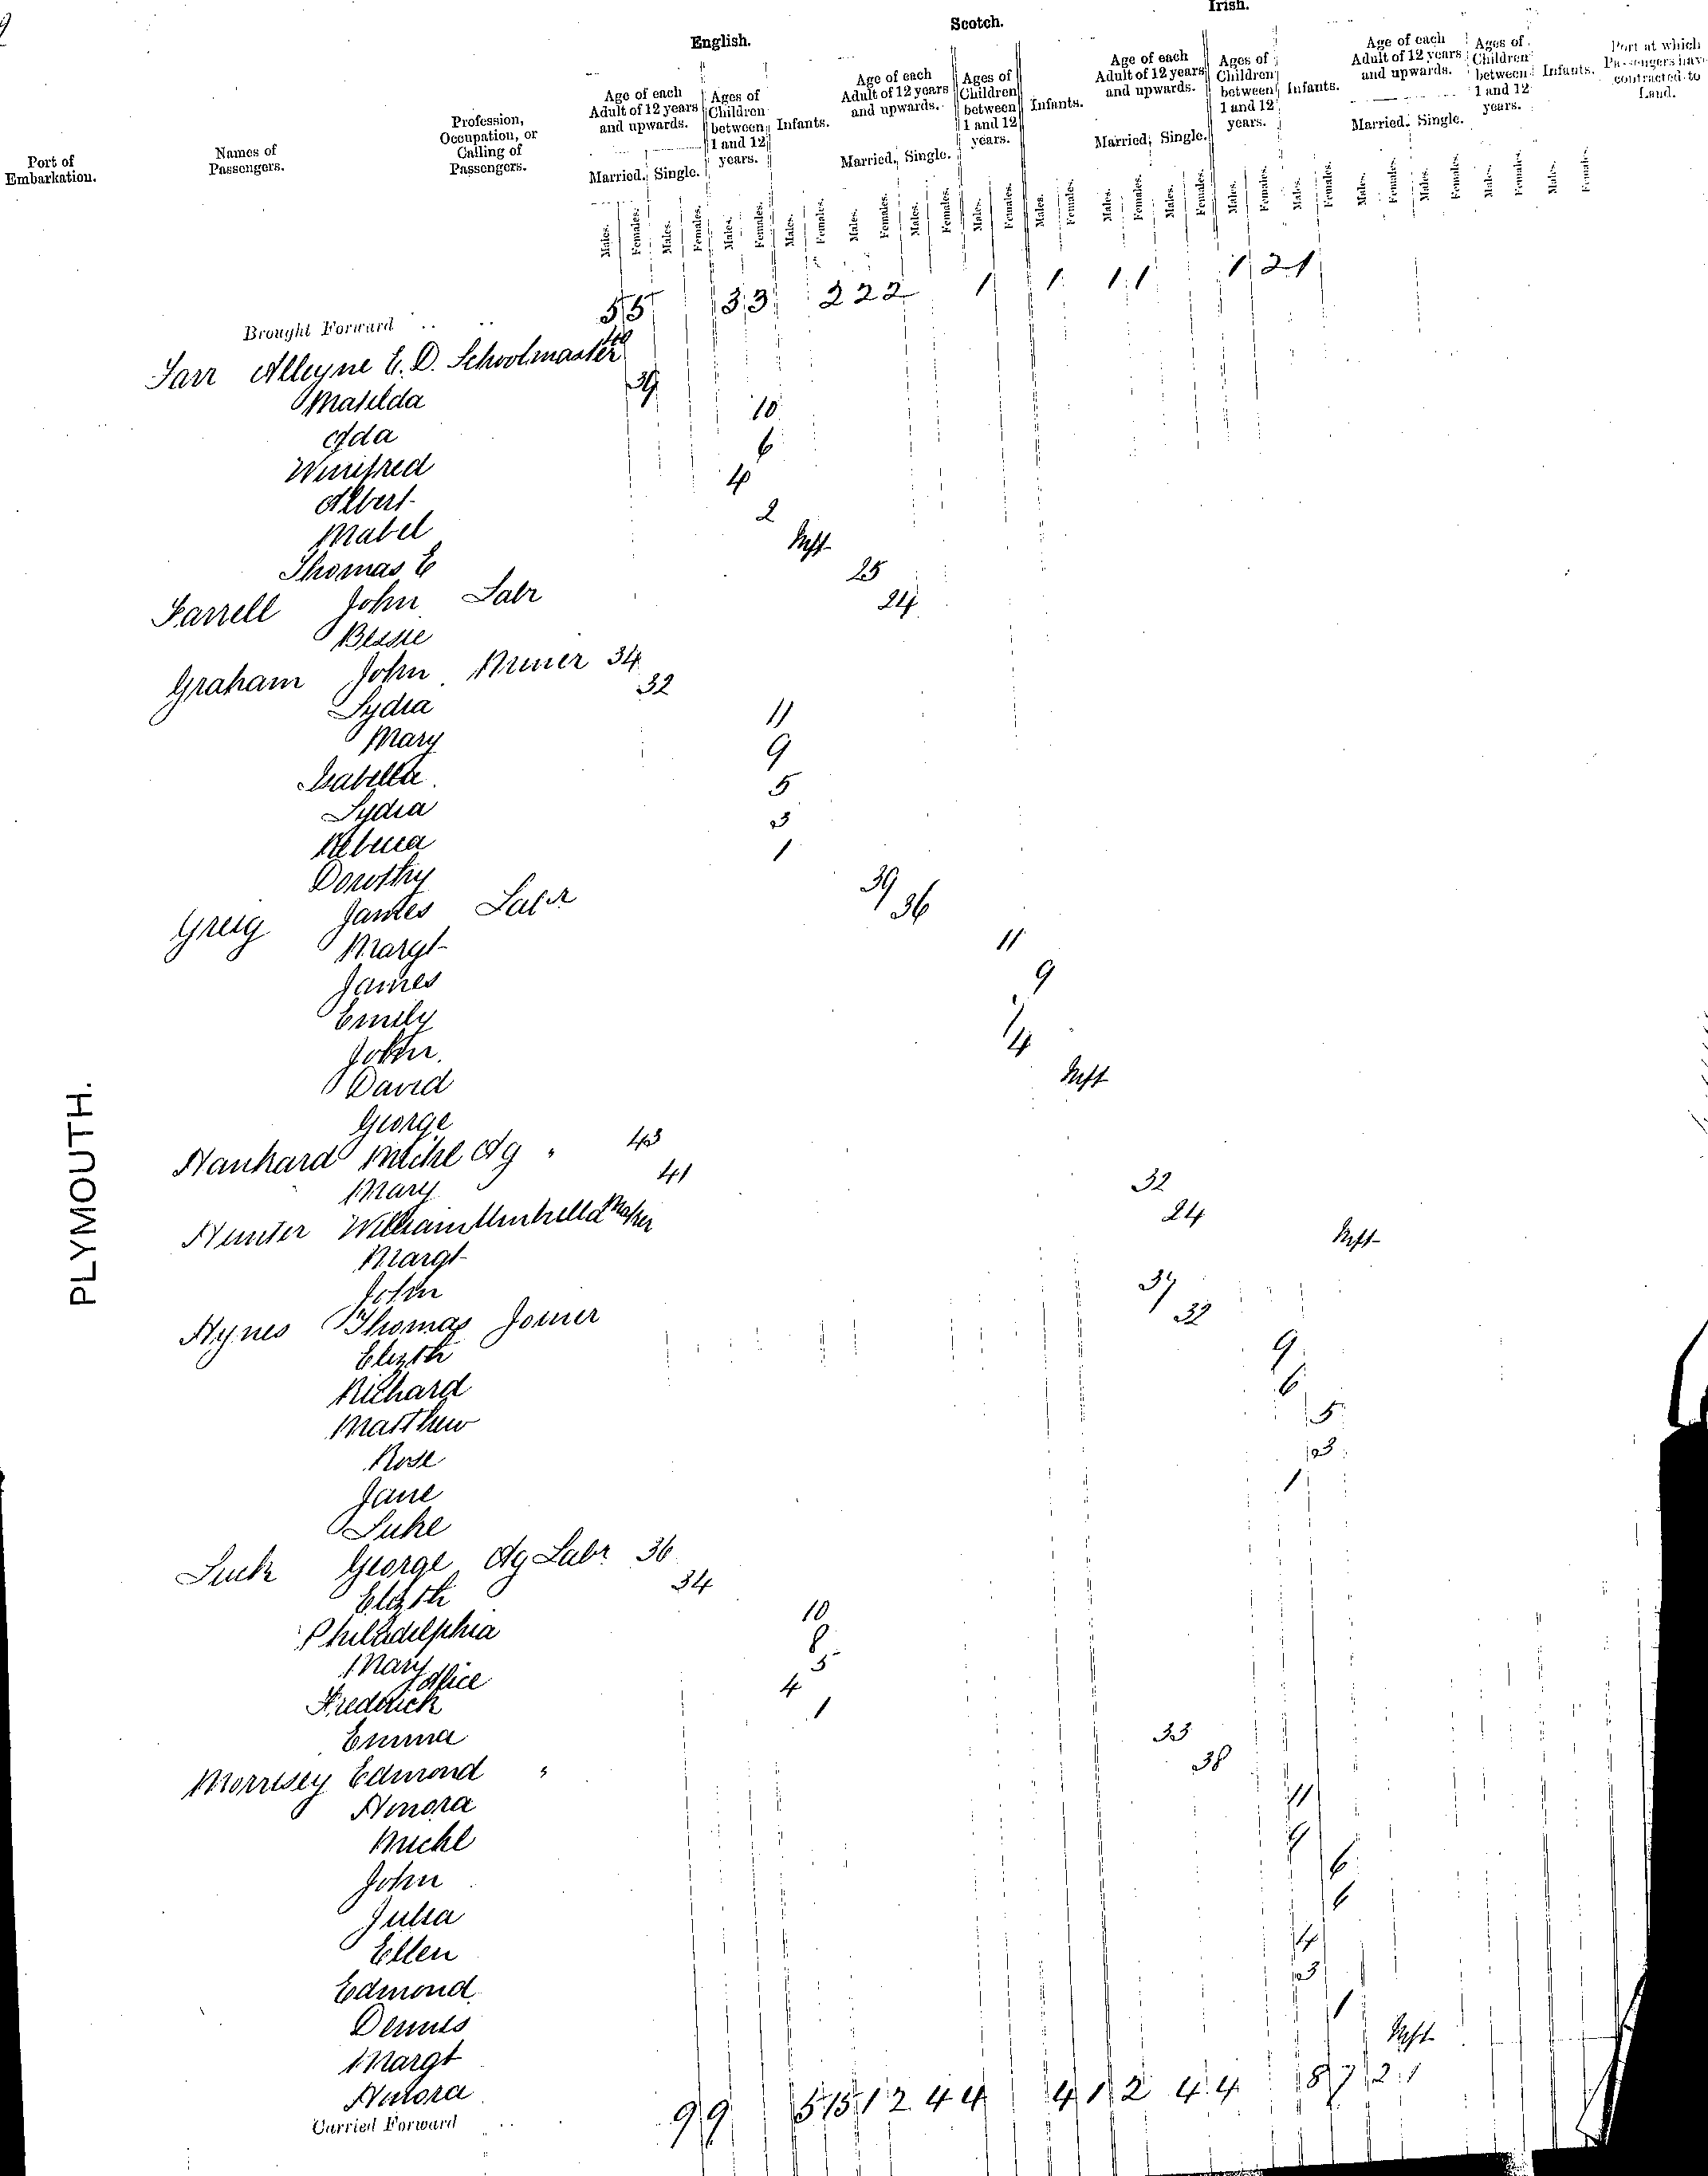 English. Scotch. Irish.
Port of Embarkation. Names of Passengers. Profession, Occupation, or Calling of Passengers. Age of each Adult of 12 years and upwards. Married. Single. Ages of Children between 1 and 12 years. Infants. Age of each Adult of 12 years and upwards. Married. Single. Ages of Children between 1 and 12 years. Infants. Age of each Adult of 12 years and upwards. Married. Single. Ages of Children between 1 and 12 years. Infants. Age of each Adult of 12 years and upwards. Married. Single. Ages of Children between 1 and 12 years. Infants. Port at which Passengers have contracted to Land.
Males. Females. Males. Females. Males. Females. Males. Females. Males. Females. Males. Females. Males. Females. Males. Females. Males. Females. Males. Females. Males. Females. Males. Females. Males. Females. Males. Females. Males. Females. Males. Females.
Brought Forward .. .. 5 5 3 3 2 2 2 1 1 1 1 1 2 1
Alleyne E. D. Schoolmaster 40
Matilda 39
Ada 10
Winifred 6
Albert 4
Mabel 2
Thomas E Inft
Farrell John Labr 25
Bessie 24
Graham John Miner 34
Lydia 32
Mary 11
Isabella 9
Lydia 5
Rebecca 3
Dorothy 1
Greig James Labr 39
Margt 36
James 11
Emily 9
John 7
David 4
George Inft
Michl Ag " 43
Mary 41
Hunter William Umbrella Maker 32
Margt 24
John Inft
Hynes Thomas Joiner 34
Elizth 32
Richard 9
Matthew 6
Rose 5
Jane 3
Luke 1
Luck George Ag Labr 36
Elizth 34
Philadelphia 10
Mary 8
Alice 5
Frederick 4
Emma 1
Morrisey Edmond " 33
Honora 38
Michl 11
John 9
Julia 6
Ellen 6
Edmond 4
Dennis 3
Margt 1
Honora Inft
Carried Forward .. 9 9 5 15 1 2 4 4 4 1 2 4 4 8 7 2 1
PLYMOUTH.